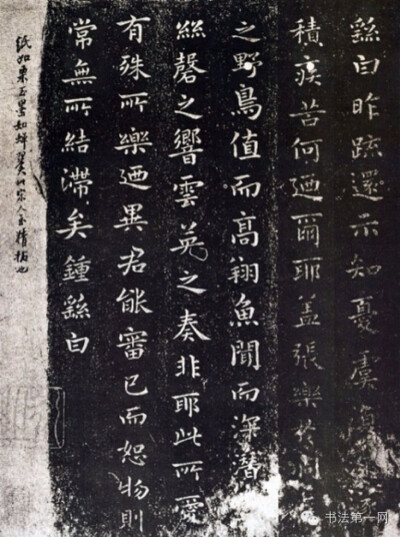 繇白昨疏還示知憂虞復深
積疾苦何迺爾耶蓋張樂於洞
之野鳥值而高翔魚聞而深潛
絲磬之響雲英之奏非耶此所愛
有殊所樂迺異君能審己而恕物則
常無所結滯矣鍾繇白
紙如栗玉墨如蟬翼的宋人至精拓也
书法第一网